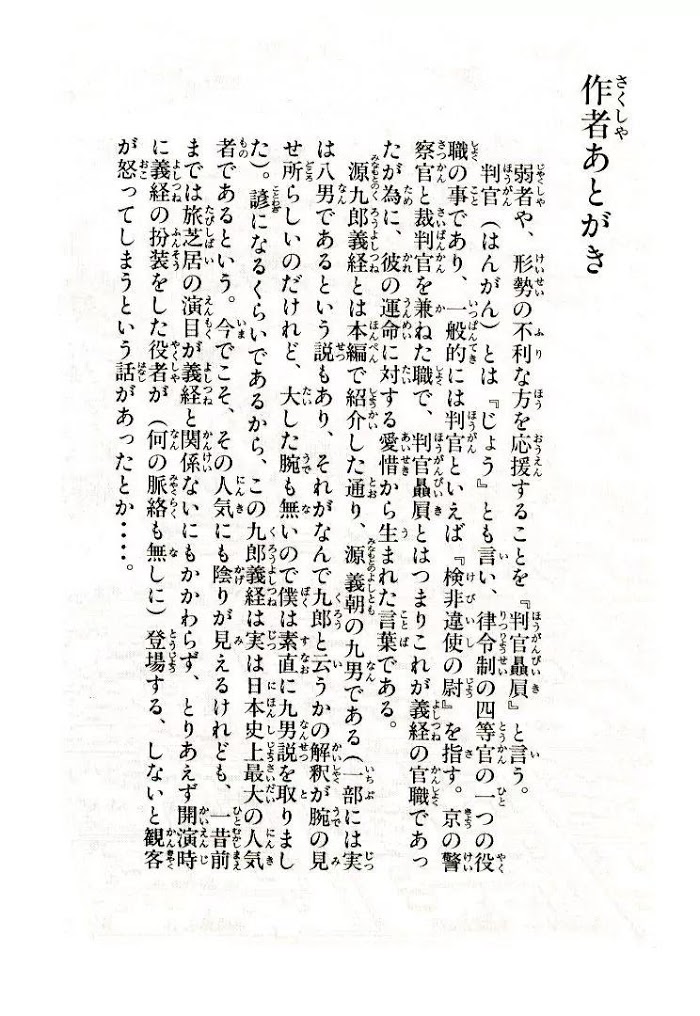 作者あとがき
弱者や、形勢の不利な方を応援することを『判官贔屓』と言う。
判官（はんがん）とは『じょう』とも言い、律令制の四等官の一つの役
職の事であり、一般的には判官といえば『検非違使の尉』を指す。京の警
察官と裁判官を兼ねた職で、判官贔屓とはつまりこれが義経の官職であっ
たが為に、彼の運命に対する愛惜から生まれた言葉である。
源九郎義経とは本編で紹介した通り、源義朝の九男である（一部には実
は八男であるという説もあり、それがなんで九郎と云うかの解釈が腕の見
せ所らしいのだけれど、大した腕も無いので僕は素直に九男説を取りまし
た）。諺になるくらいであるから、この九郎義経は実は日本史上最大の人気
者であるという。今でこそ、その人気にも陰りが見えるけれども、一昔前
までは旅芝居の演目が義経と関係ないにもかかわらず、とりあえず開演時
に義経の扮装をした役者が（何の脈絡も無しに）登場する、しないと観客
が怒ってしまうという話があったとか・・・・。